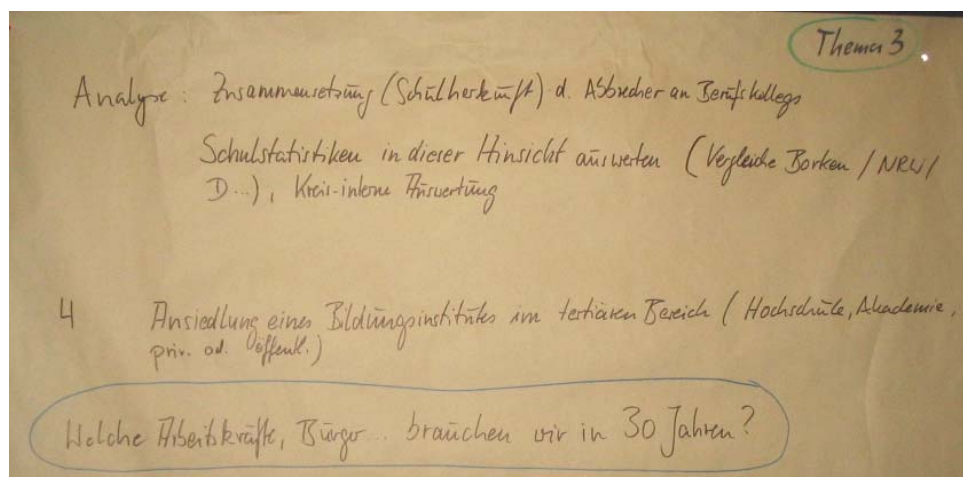 Thema 3
Analyse : Zusammensetzung (Schulherkunft) d. Abbrecher an Berufskollegs
Schulstatistiken in dieser Hinsicht auswerten (Vergleiche Borken / NRW /
D...), Kreis-interne Auswertung
4 Ansiedlung eines Bildungsinstitutes im tertiären Bereich (Hochschule, Akademie,
priv. od. öffentl.)
Welche Arbeitskräfte, Bürger... brauchen wir in 30 Jahren?